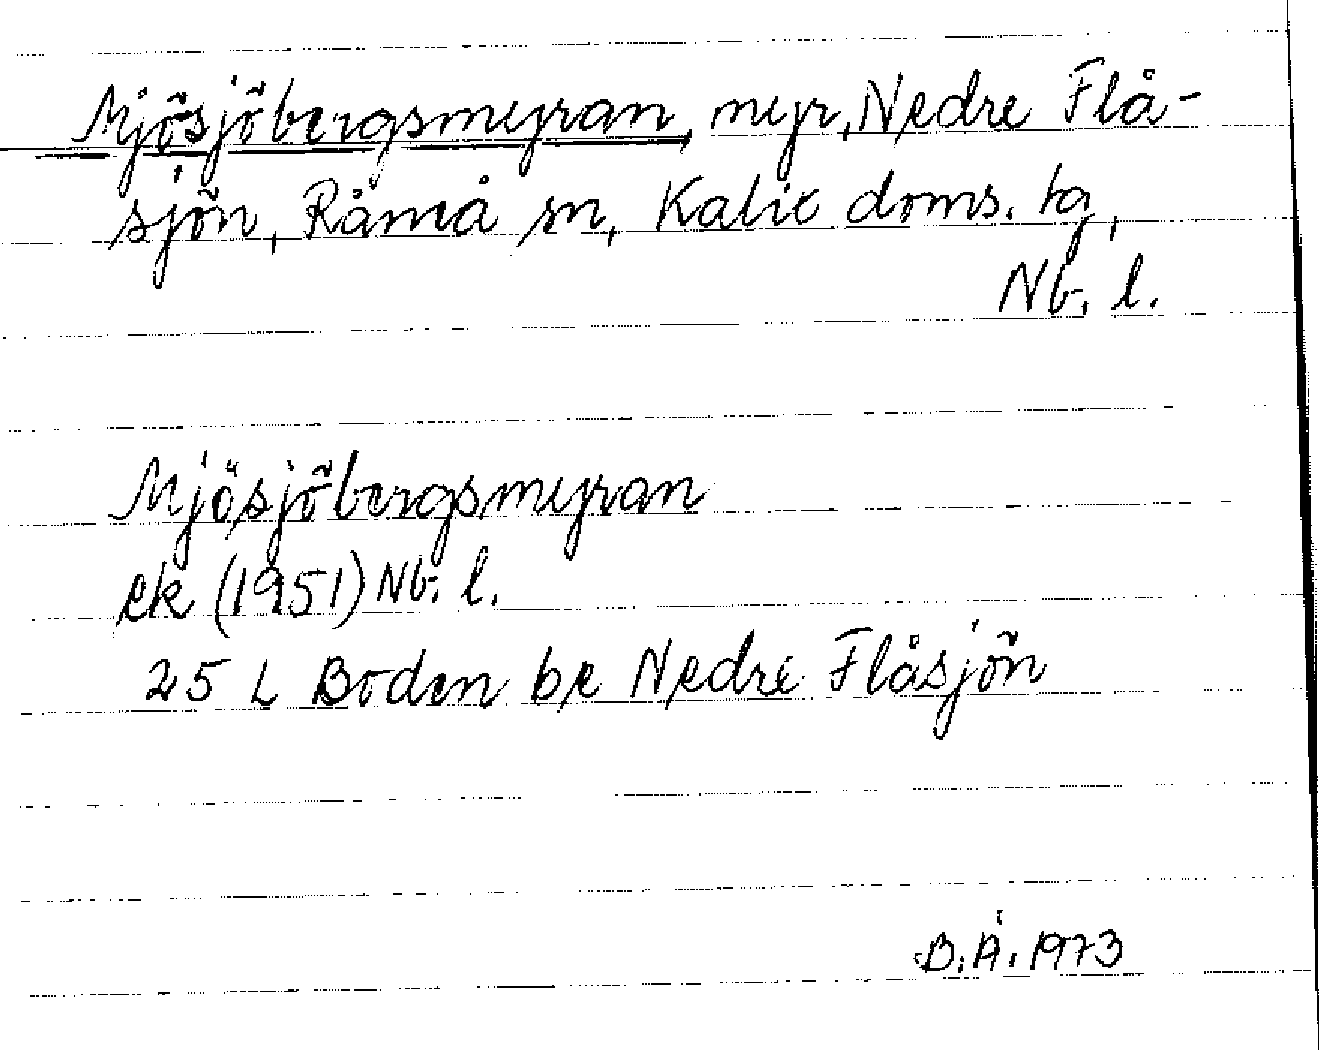 Mjösjöbergsmyran, myr, Nedre Flå-
sjön, Råneå sn, Kalix doms. tg,
Nb. l.
Mjösjöbergsmyran
ek (1951) Nb. l.
25 L Boden be Nedre Flåsjön
B.Å. 1973